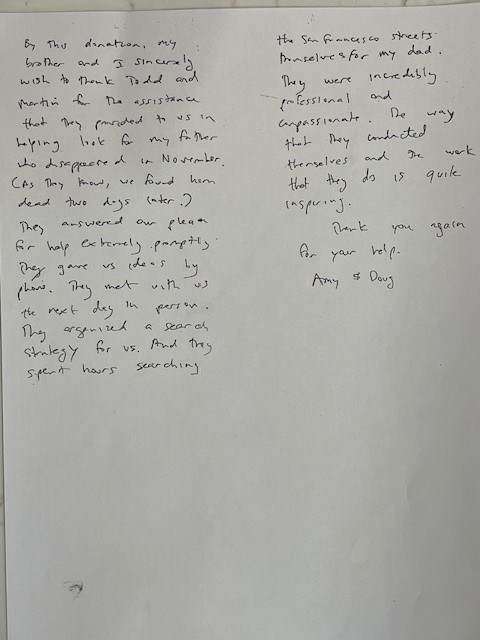 By this donation, my
brother and I sincerely
wish to thank Todd and
Martin for the assistance
that they provided to us in
helping look for my father
who disappeared in November.
(As they know, we found him
dead two days later.)
They answered our pleas
for help extremely promptly.
They gave us ideas by
phone. They met with us
the next day in person.
They organized a search
strategy for us. And they
spent hours searching
the San Francisco streets
themselves for my dad.
They were incredibly
professional and
compassionate. The way
that they conducted
themselves and the work
that they do is quite
inspiring.
Thank you again
for your help.
Amy & Doug